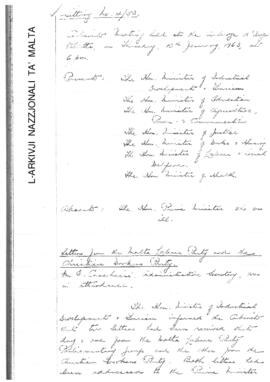 L-ARKIVJI NAZZJONALI TA' MALTA
Meeting No. 4/63
Cabinet Meeting held at the Auberge d'
Valletta, on Thursday, January 1963, at
6 pm.
Present: The Hon. Minister of Industrial
Development & Tourism
The Hon. Minister of Education
The Hon. Minister of Agriculture,
Power & Communications
The Hon. Minister of Justice
The Hon. Minister of Works & Housing
The Hon. Minister of Labour & Social
Welfare
The Hon. Minister of Health
Absent: The Hon. Prime Minister who was
ill.
Letters from the Malta Labour Party and the
Christian Workers Party
Administrative Secretary, was
in attendance.
The Hon. Minister of Industrial
Development & Tourism informed the Cabinet
that two letters had been received that
day, one from the Malta Labour Party
Parliamentary Group and the other from the
Christian Workers Party. Both letters had
been addressed to the Prime Minister